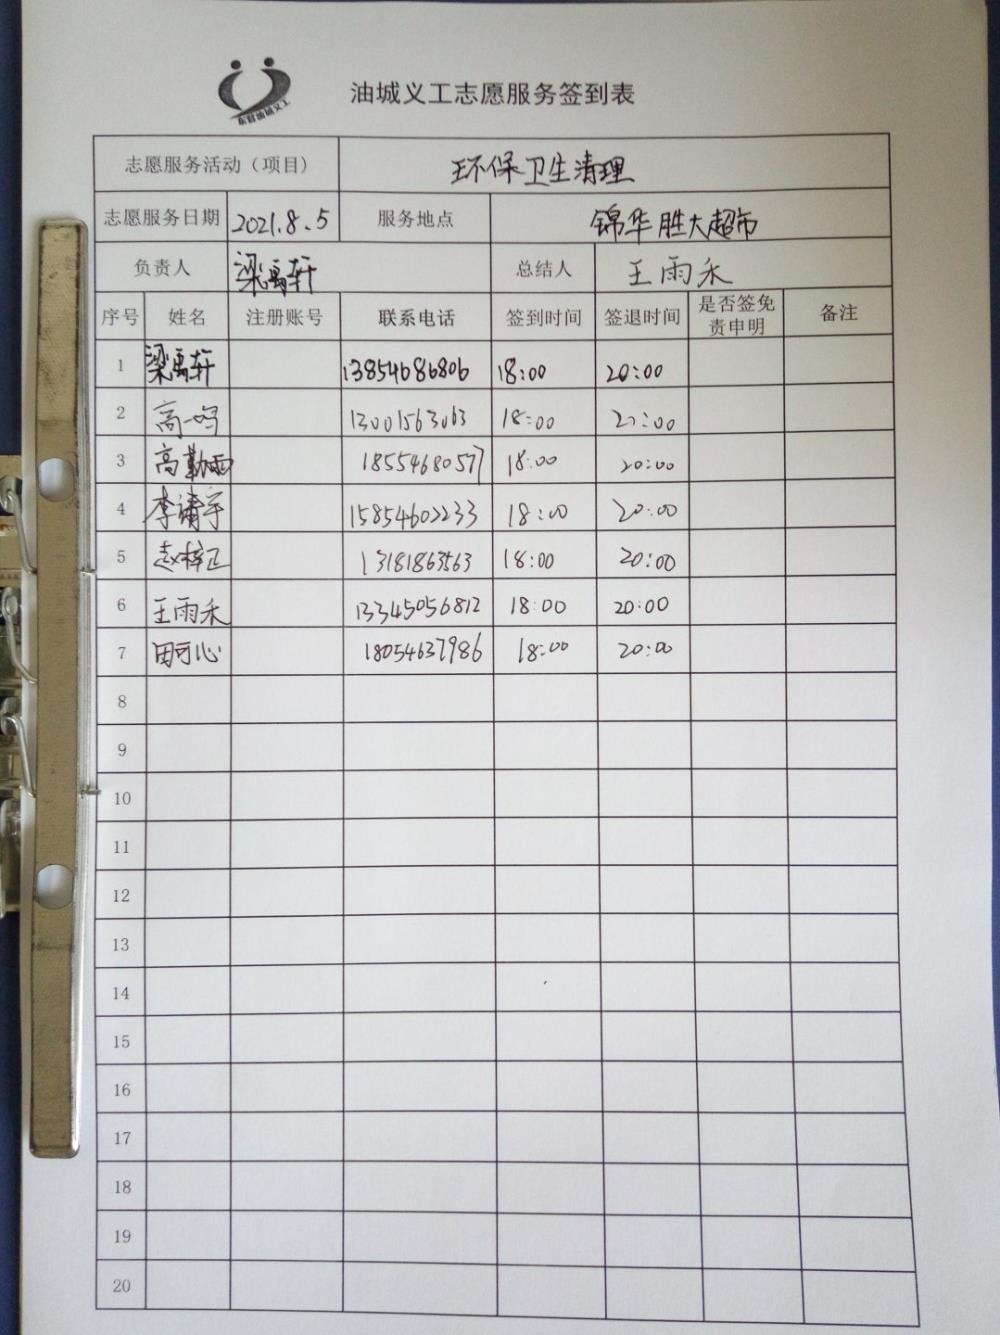 东营油城义工
油城义工志愿服务签到表
志愿服务活动（项目） 环保卫生清理
志愿服务日期 2021.8.5 服务地点 锦华胜大超市
负责人 梁禹轩 总结人 王雨禾
序号 姓名 注册账号 联系电话 签到时间 签退时间 是否签免责申明 备注
1 梁禹轩 13854686806 18:00 20:00
2 高一鸣 13001563063 18:00 20:00
3 高勤雨 18554680577 18:00 20:00
4 李靖宇 15854602233 18:00 20:00
5 赵梓正 18:00 20:00
6 王雨禾 13345056812 18:00 20:00
7 田可心 18054637986 18:00 20:00
8
9
10
11
12
13
14
15
16
17
18
19
20